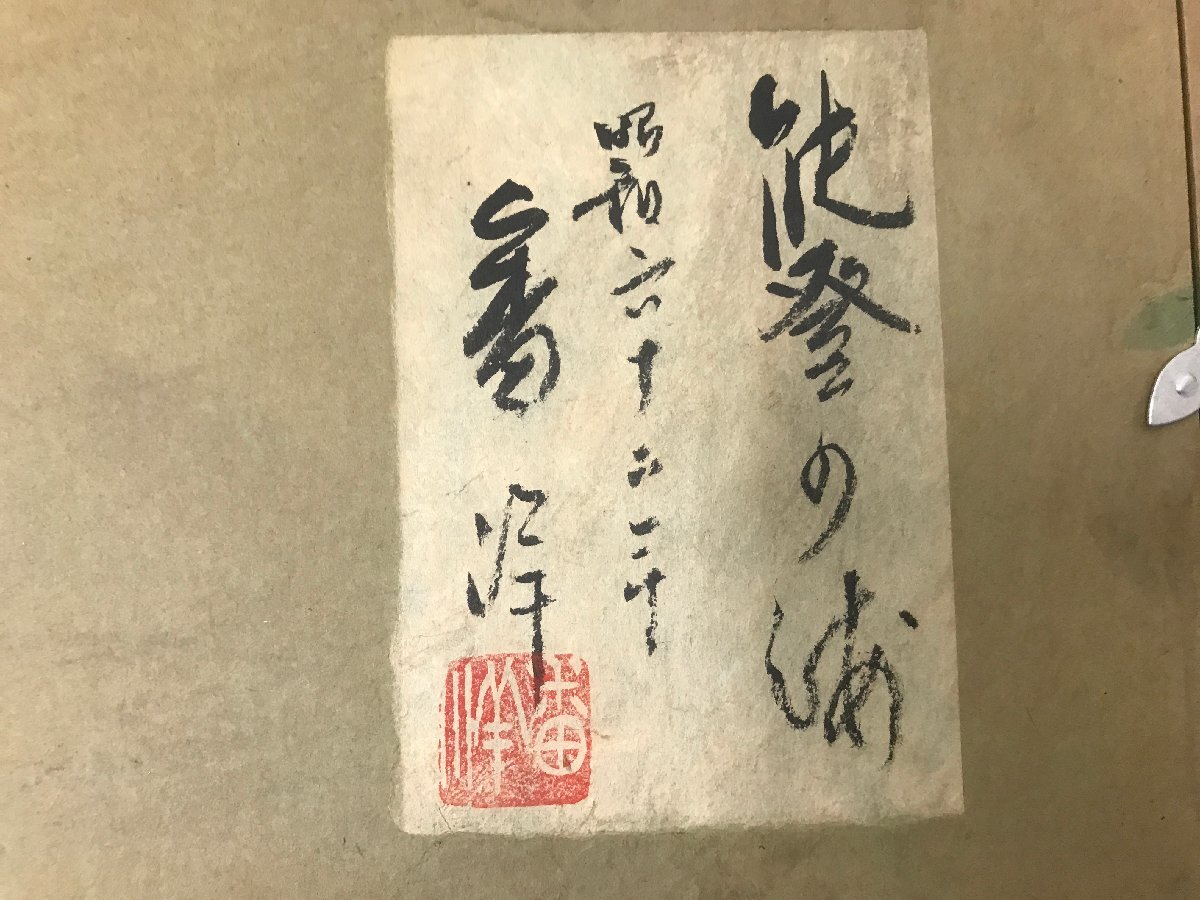 能登の海
昭和六十
番洋
番洋